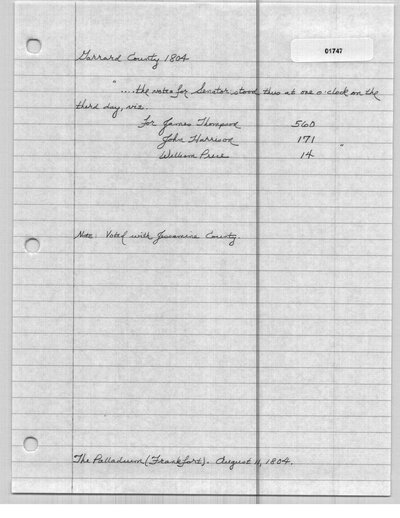 01747
Garrard County 1804
"....the votes for Senator stood thus at one o'clock on the
third day, viz.
For James Thompson 560
John Harrison 171
William Price 14 "
Note: Voted with Jessamine County.
The Palladium (Frankfort). August 11, 1804.